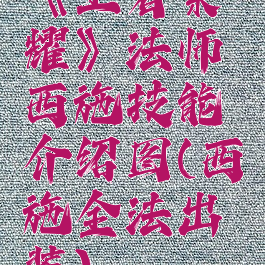 《王者荣
耀》法师
西施技能
介绍图(西
施全法出
装)